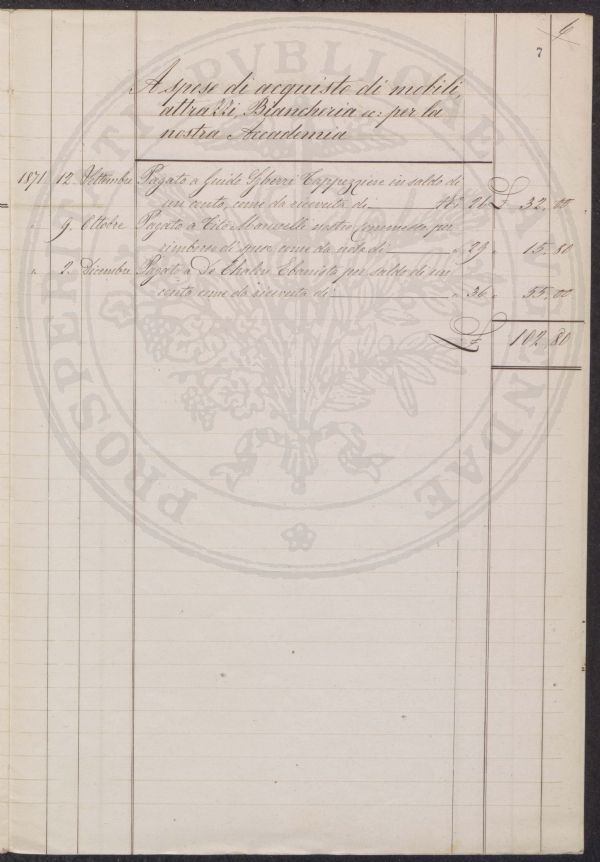 6
7
A spese di acquisto di mobili,
attrazzi, Biancheria ec: per la
nostra Accademia
1871. 12. Settembre Pagato a Guido Tappezziere in saldo di
un conto, come da ricevuta di N.º 26 £ 32,00
" 9. Ottobre Pagato a Tito nostro Commesso per
rimborso di spese come da nota di " 29 " 15.80
" 2. Dicembre Pagato a De Ebanista per saldo di un
conto come da ricevuta di " 36 " 55,00
£ 102.80
PROSPERITATI PVBLICAE AVGENDAE